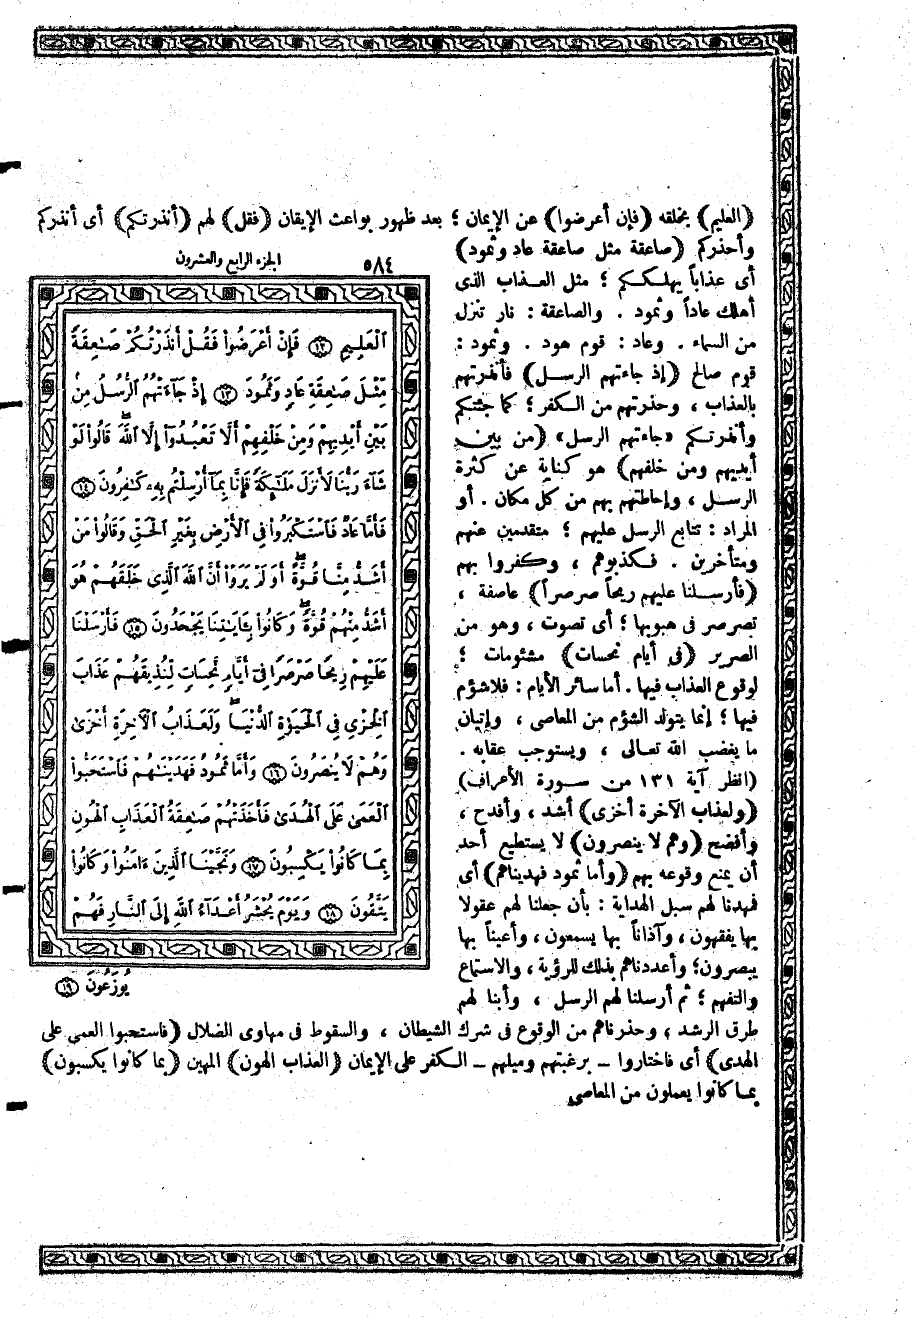 (العليم) بخلقه (فإن أعرضوا) عن الإيمان ؛ بعد ظهور بواعث الإيقان (فقل) لهم (أنذرتكم) أى أنذركم
وأحذركم (صاعقة مثل صاعقة عاد وثمود)
أى عذاباً يهلككم ؛ مثل العذاب الذى
أهلك عاداً وثمود . والصاعقة : نار تنزل
من السماء . وعاد : قوم هود . وثمود :
قوم صالح (إذ جاءتهم الرسل) فأنذرتهم
بالعذاب ، وحذرتهم من الكفر ؛ كما جئتكم
وأنذرتكم «جاءتهم الرسل» (من بين
أيديهم ومن خلفهم) هو كناية عن كثرة
الرسل ، وإحاطتهم بهم من كل مكان . أو
المراد : تتابع الرسل عليهم ؛ متقدمين عنهم
ومتأخرين . فكذبوهم ، وكفروا بهم
(فأرسلنا عليهم ريحاً صرصراً) عاصفة ،
تصرصر فى هبوبها ؛ أى تصوت ، وهو من
الصرير (فى أيام نحسات) مشئومات ؛
لوقوع العذاب فيها . أما سائر الأيام : فلا شؤم
فيها ؛ إنما يتولد الشؤم من المعاصى ، وإتيان
ما يغضب الله تعالى ، ويستوجب عقابه .
(انظر آية ١٣١ من سورة الأعراف)
(ولعذاب الآخرة أخرى) أشد ، وأفدح ،
وأفضح (وهم لا ينصرون) لا يستطيع أحد
أن يمنع وقوعه بهم (وأما ثمود فهديناهم) أى
فهدنا لهم سبل الهداية : بأن جعلنا لهم عقولا
بها يفقهون ، وآذاناً بها يسمعون ، وأعيناً بها
يبصرون ؛ وأعددناهم بذلك للرؤية ، والاستماع
والتفهم ؛ ثم أرسلنا لهم الرسل ، وأبنا لهم
طرق الرشد ، وحذرناهم من الوقوع فى شرك الشيطان ، والسقوط فى مهاوى الضلال (فاستحبوا العمى على
الهدى) أى فاختاروا – برغبتهم وميلهم – الكفر على الإيمان (العذاب الهون) المهين (بما كانوا يكسبون)
بما كانوا يعملون من المعاصى
٥٨٤ الجزء الرابع والعشرون
ٱلْعَلِيمِ ١٢ فَإِنْ أَعْرَضُوا۟ فَقُلْ أَنذَرْتُكُمْ صَـٰعِقَةً
مِّثْلَ صَـٰعِقَةِ عَادٍ وَثَمُودَ ١٣ إِذْ جَآءَتْهُمُ ٱلرُّسُلُ مِنۢ
بَيْنِ أَيْدِيهِمْ وَمِنْ خَلْفِهِمْ أَلَّا تَعْبُدُوٓا۟ إِلَّا ٱللَّهَ ۖ قَالُوا۟ لَوْ
شَآءَ رَبُّنَا لَأَنزَلَ مَلَـٰٓئِكَةً فَإِنَّا بِمَآ أُرْسِلْتُم بِهِۦ كَـٰفِرُونَ ١٤
فَأَمَّا عَادٌ فَٱسْتَكْبَرُوا۟ فِى ٱلْأَرْضِ بِغَيْرِ ٱلْحَقِّ وَقَالُوا۟ مَنْ
أَشَدُّ مِنَّا قُوَّةً ۖ أَوَلَمْ يَرَوْا۟ أَنَّ ٱللَّهَ ٱلَّذِى خَلَقَهُمْ هُوَ
أَشَدُّ مِنْهُمْ قُوَّةً ۖ وَكَانُوا۟ بِـَٔايَـٰتِنَا يَجْحَدُونَ ١٥ فَأَرْسَلْنَا
عَلَيْهِمْ رِيحًا صَرْصَرًا فِىٓ أَيَّامٍ نَّحِسَاتٍ لِّنُذِيقَهُمْ عَذَابَ
ٱلْخِزْىِ فِى ٱلْحَيَوٰةِ ٱلدُّنْيَا ۖ وَلَعَذَابُ ٱلْـَٔاخِرَةِ أَخْزَىٰ
وَهُمْ لَا يُنصَرُونَ ١٦ وَأَمَّا ثَمُودُ فَهَدَيْنَـٰهُمْ فَٱسْتَحَبُّوا۟
ٱلْعَمَىٰ عَلَى ٱلْهُدَىٰ فَأَخَذَتْهُمْ صَـٰعِقَةُ ٱلْعَذَابِ ٱلْهُونِ
بِمَا كَانُوا۟ يَكْسِبُونَ ١٧ وَنَجَّيْنَا ٱلَّذِينَ ءَامَنُوا۟ وَكَانُوا۟
يَتَّقُونَ ١٨ وَيَوْمَ يُحْشَرُ أَعْدَآءُ ٱللَّهِ إِلَى ٱلنَّارِ فَهُمْ
يُوزَعُونَ ١٩